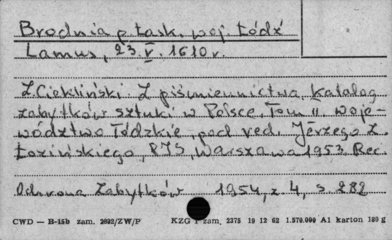 Brodnia p. Łask, woj. Łódź
Lamus, 23.V.1610 r.
Z. Ciekliński Z piśmiennictwa, Katalog
zabytków sztuki w Polsce, Tom II woje-
wództwo łódzkie, pod red. Jerzego Z.
Łozińskiego, PIS, Warszawa 1953. Rec.
Ochrona Zabytków 1954, z. 4, s 282
CWD — B-15b zam. 2692/ZW/P KZG 1 zam. 2375 19 12 62 1.570.000 A1 karton 180 g